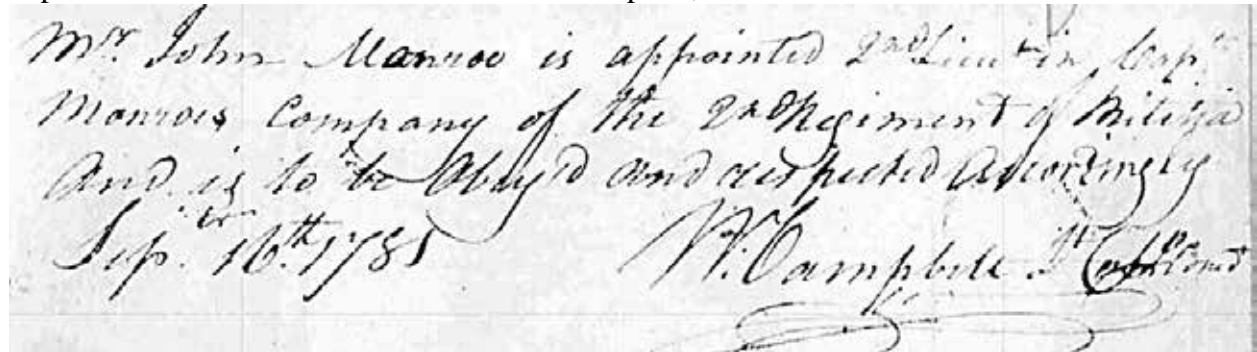 Mr. John Manroe is appointed 2nd Lieut in Cap.
Monroes Company of the 2nd Regiment of Militia
And is to be Abay'd and respected Accordingly
Sep.tr 16.th 1781 W. Campbell Lt